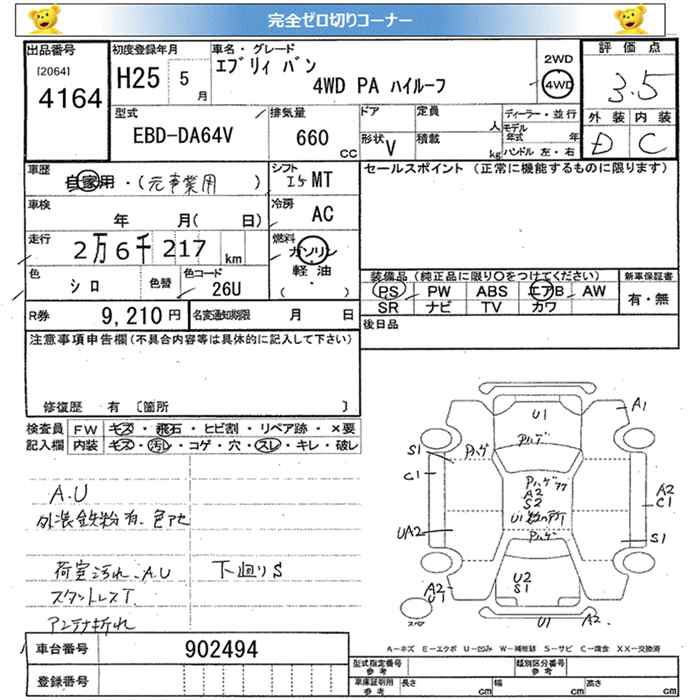 完全ゼロ切りコーナー
出品番号
[2064]
4164
初度登録年月
H25 5月
車名・グレード
エブリィ バン
4WD PA ハイルーフ
2WD
4WD
評価点
3.5
外装 内装
D C
型式
EBD-DA64V
排気量
660 CC
ドア
形状 V
定員 人
積載 kg
ディーラー・並行
モデル年式 年
ハンドル 左・右
車歴
自家用・(元事業用)
シフト
MT
セールスポイント (正常に機能するものに限ります)
車検
年 月( 日)
冷房
AC
走行
2万6千217 km
燃料
ガソリン
軽油
( ・ )
色
シロ
色替
色コード
26U
装備品 (純正品に限り○をつけてください)
PS PW ABS エアB AW
SR ナビ TV カワ
新車保証書
有・無
R券 9,210円
名変通知期限 月 日
後日品
注意事項申告欄 (不具合内容等は具体的に記入して下さい)
修復歴 有 〔箇所 〕
検査員記入欄
FW キズ・飛石・ヒビ割・リペア跡・×要
内装 キズ・汚レ・コゲ・穴・スレ・キレ・破レ
A.U
外装鉄粉有.色アセ
荷室汚れ.A.U 下廻りS
スタットレスT.
アンテナ折れ
U1
A1
Pハゲ
Pハゲ
S1
C1
A2
S2
A2
C1
Pハゲ
UA2
S1
U2
S1
A2
U1
U1 A2.
A-キズ E-エクボ U-凹み W-補修跡 S-サビ C-腐食 XX-交換済
車台番号
902494
登録番号
型式指定番号 参考
類別区分番号 参考
車庫証明用 参考
長さ cm
幅 cm
高さ cm